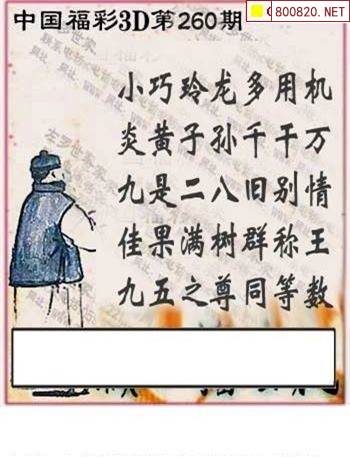 中国福彩3D第260期
800820.NET
小巧玲龙多用机
炎黄子孙千千万
九是二八旧别情
佳果满树群称王
九五之尊同等数